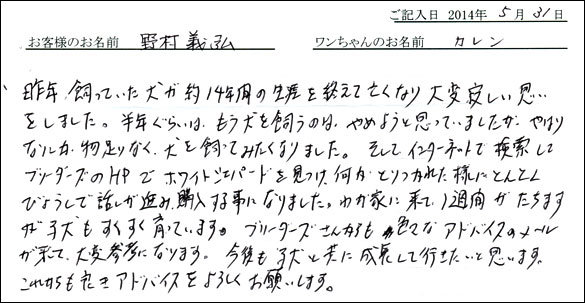 ご記入日 2014年 5月 31日
お客様のお名前 野村 義弘 ワンちゃんのお名前 カレン
昨年、飼っていた犬が約14年間の生涯を終えて亡くなり大変寂しい思い
をしました。半年ぐらいは、もう犬を飼うのは、やめようと思っていましたが、やはり
なにか物足りなく、犬を飼ってみたくなりました。そしてインターネットで検索して
ブリーダーズのHPでホワイトシェパードを見つけ、何かとりつかれた様にとんとん
びょうしで話しが進み、購入する事になりました。わが家に来て、1週間がたちます
が子犬もすくすく育っています。ブリーダーズさんからも色々なアドバイスのメール
が来て、大変参考になります。今後も子犬と共に成長して行きたいと思います。
これからも アドバイスをよろしくお願いします。